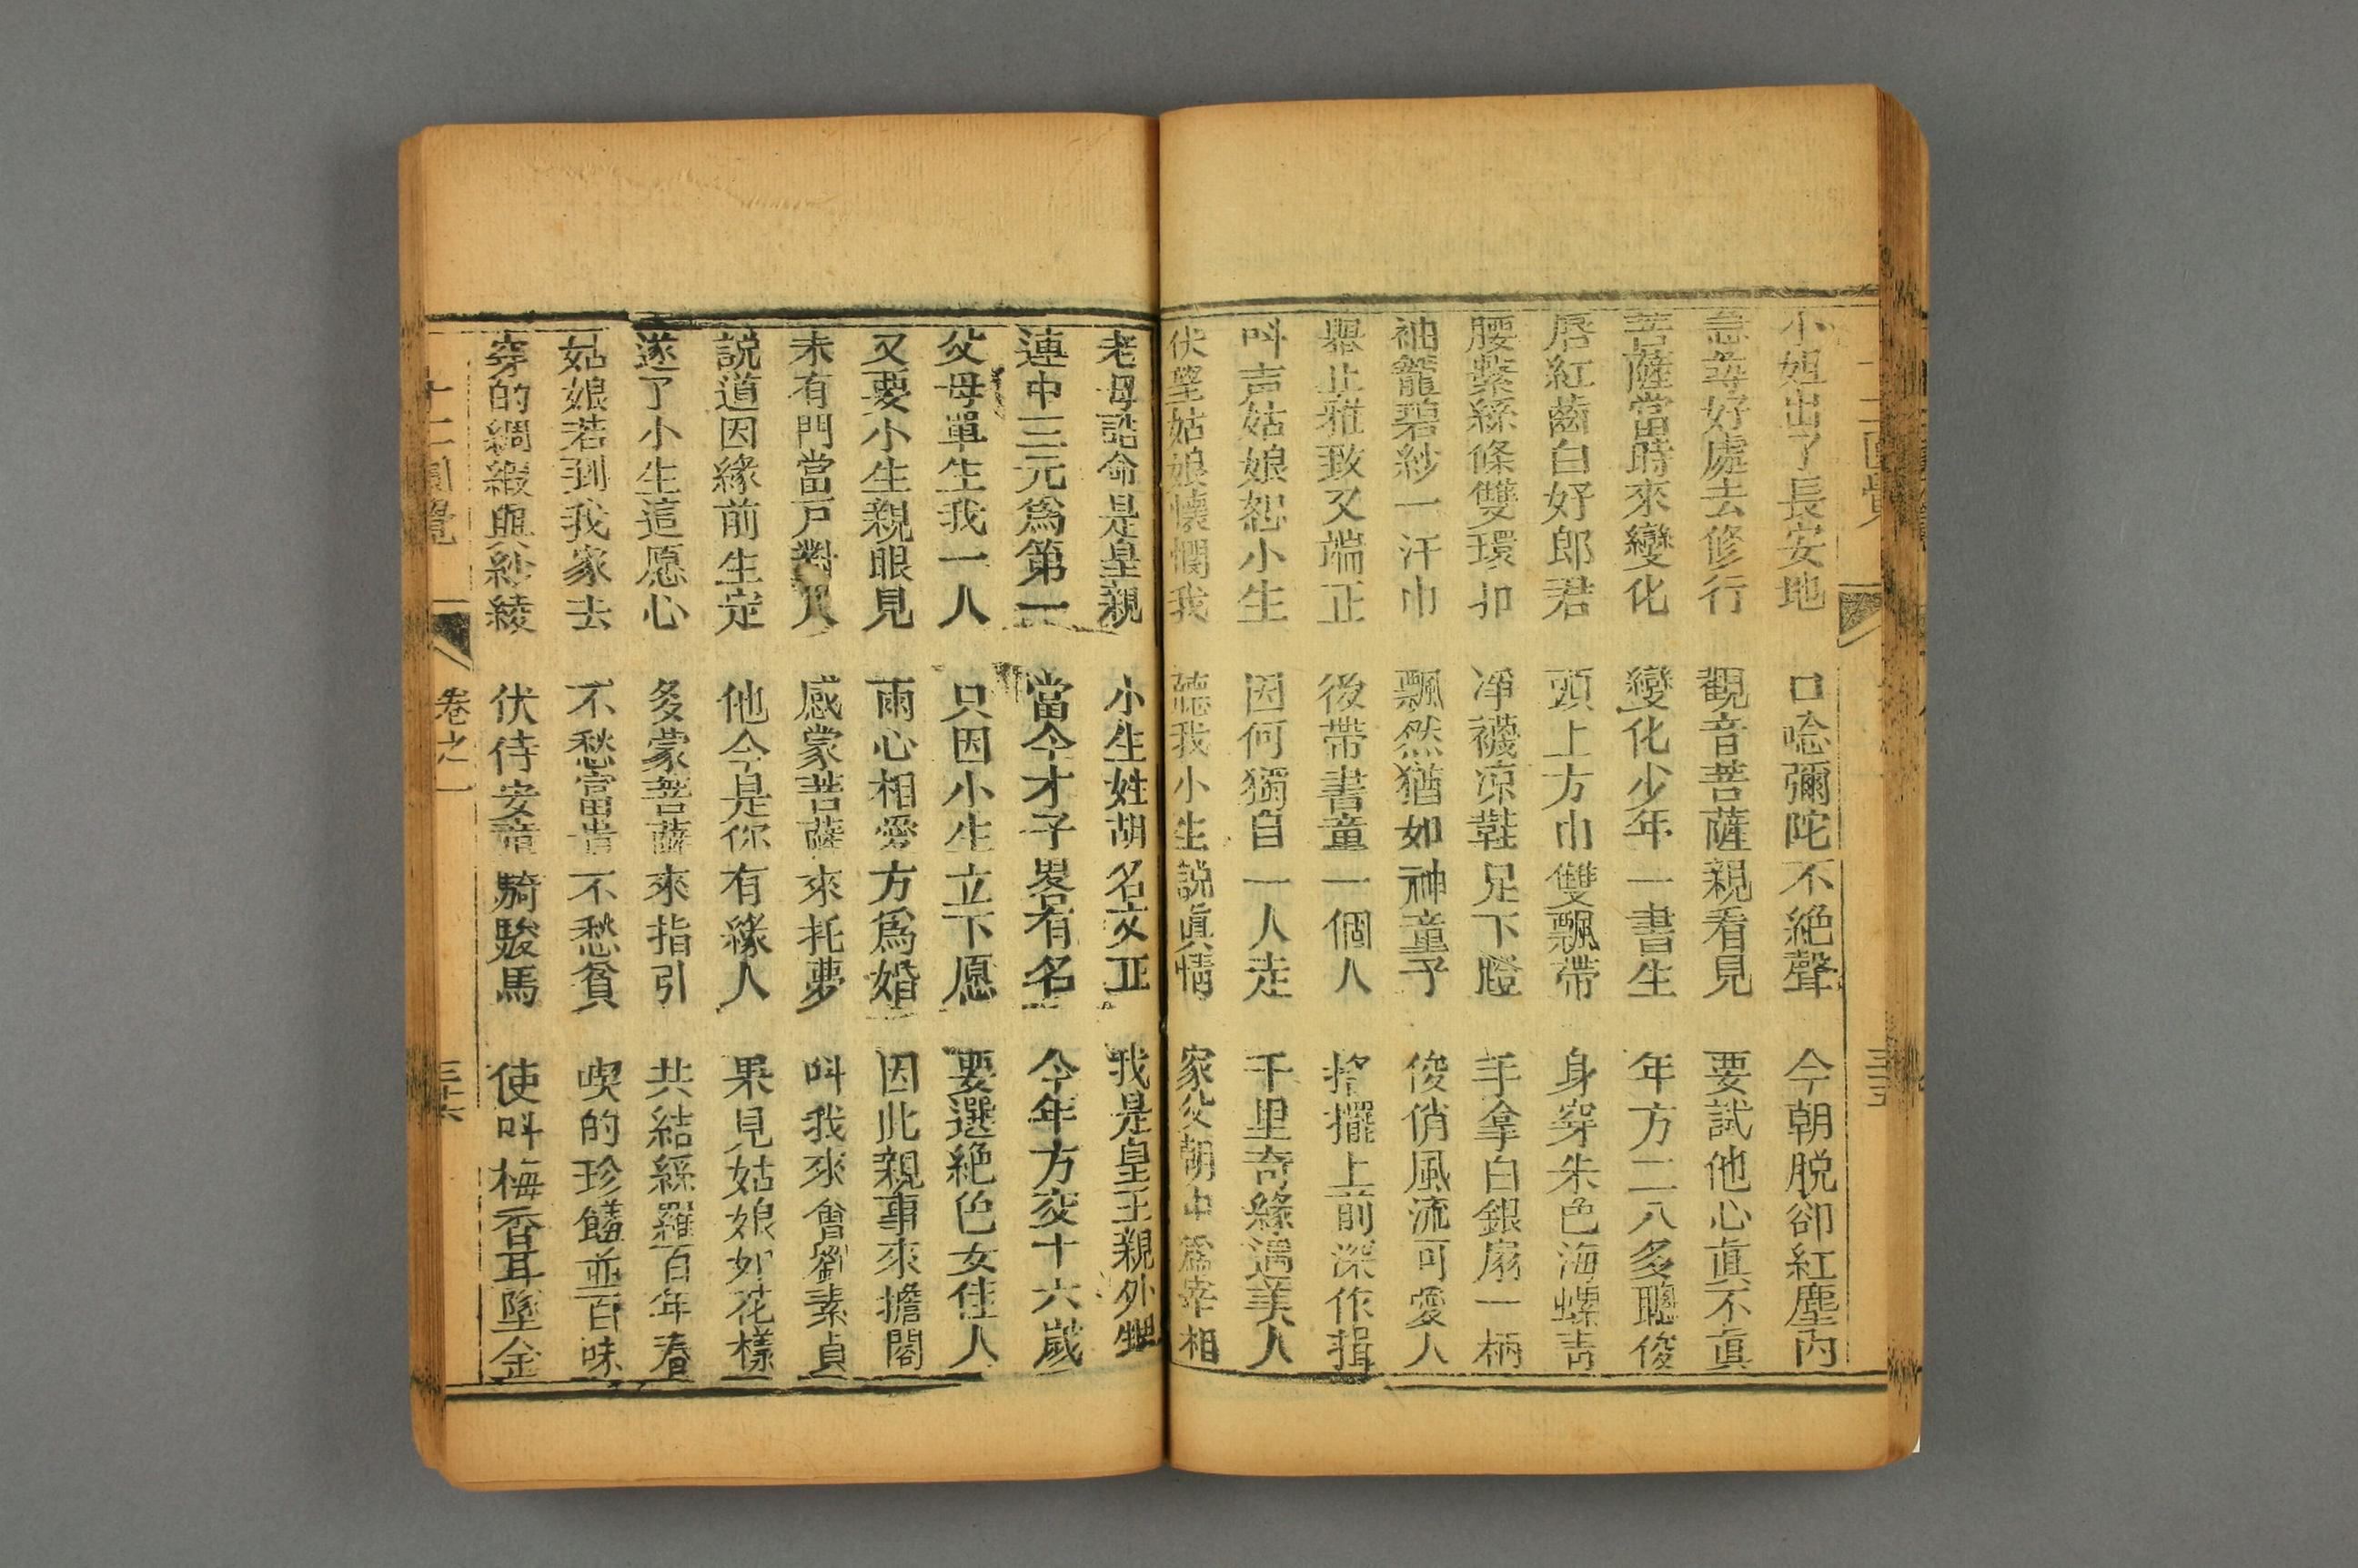 小姐出了長安地　口唸彌陀不絕聲　今朝脱卻紅塵內
急尋好處去修行　觀音菩薩親看見　要試他心眞不眞
菩薩當時來變化　變化少年一書生　年方二八多聰俊
唇紅齒白好郎君　頭上方巾雙飄帶　身穿朱色海螺青
腰繫絲條雙環扣　凈襪凉鞋足下隥　手拿白銀扇一柄
袖籠碧紗一汗巾　飄然猶如神童子　俊俏風流可愛人
舉止雅致又端正　後帶書童一個人　搖擺上前深作揖
呌声姑娘恕小生　因何獨自一人走　千里奇緣遇美人
伏望姑娘懷憫我　聽我小生説眞情　家父朝中爲宰相
老母誥命是皇親　小生姓胡名文正　我是皇王親外甥
連中三元爲第一　當今才子畧有名　今年方交十六歲
父母單生我一人　只因小生立下愿　要選絕色女佳人
又要小生親眼見　兩心相愛方爲婚　因此親事來擔閣
未有門當戸對人　感蒙菩薩來托夢　呌我來會劉素貞
説道因緣前生定　他今是你有緣人　果見姑娘如花樣
遂了小生這愿心　多蒙菩薩來指引　共結絲羅百年春
姑娘若到我家去　不愁富貴不愁貧　喫的珍饈並百味
穿的綢緞與紗綾　伏侍安童騎駿馬　使呌梅香耳墜金
十二圓覺　卷之一　三六